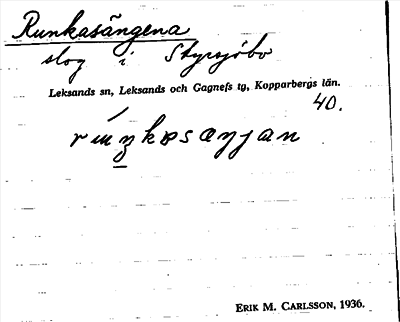 Runkasängena
slog i Styrsjöbo
Leksands sn, Leksands och Gagnefs tg, Kopparbergs län.
40.
ERIK M. CARLSSON, 1936.